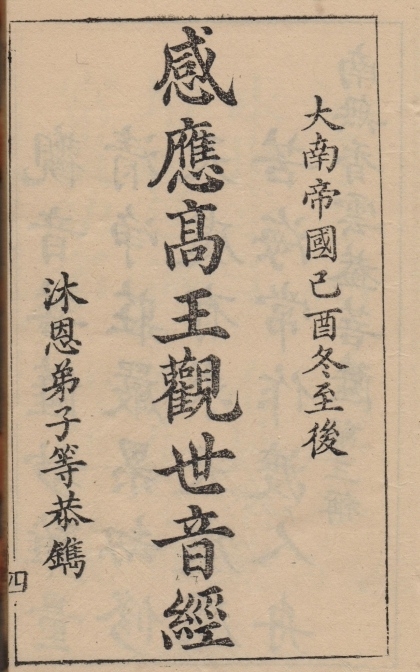 大南帝國己酉冬至後
感應高王觀世音經
沐恩弟子等恭鐫
四